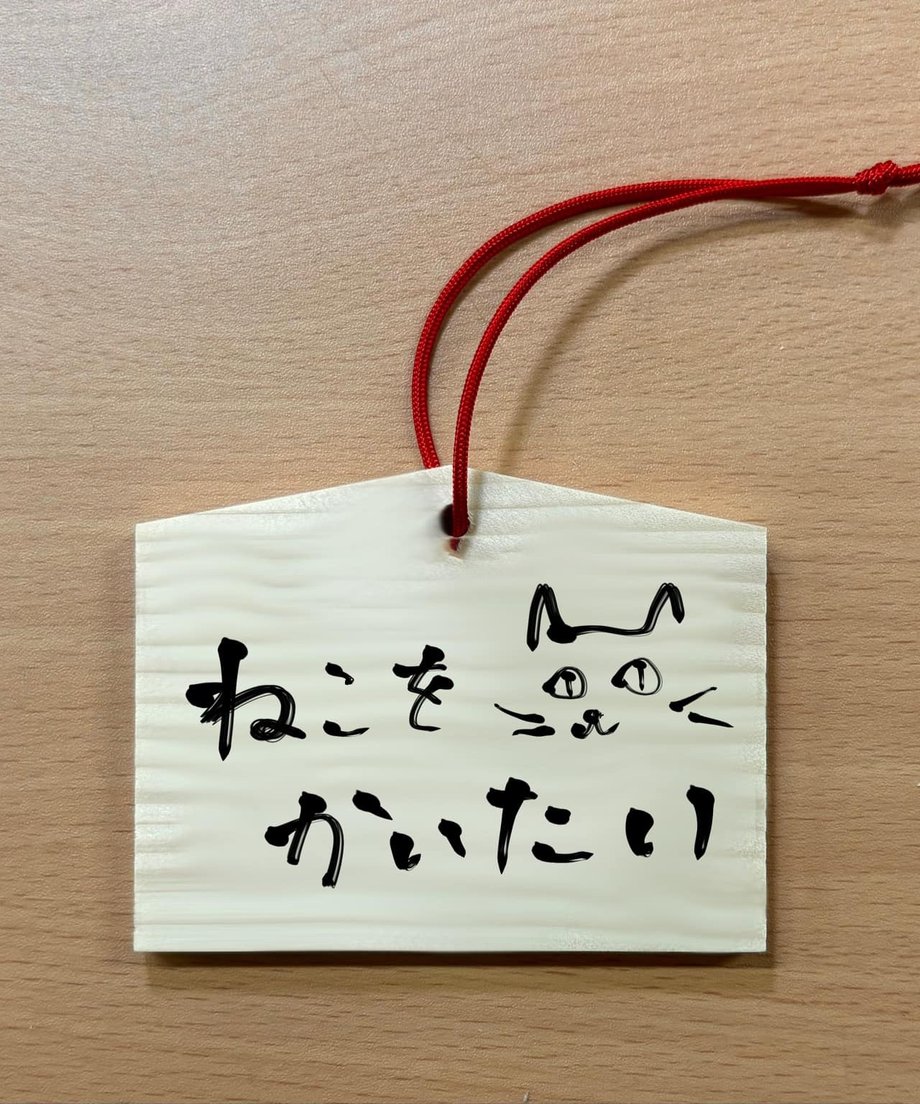 ねこを
かいたい